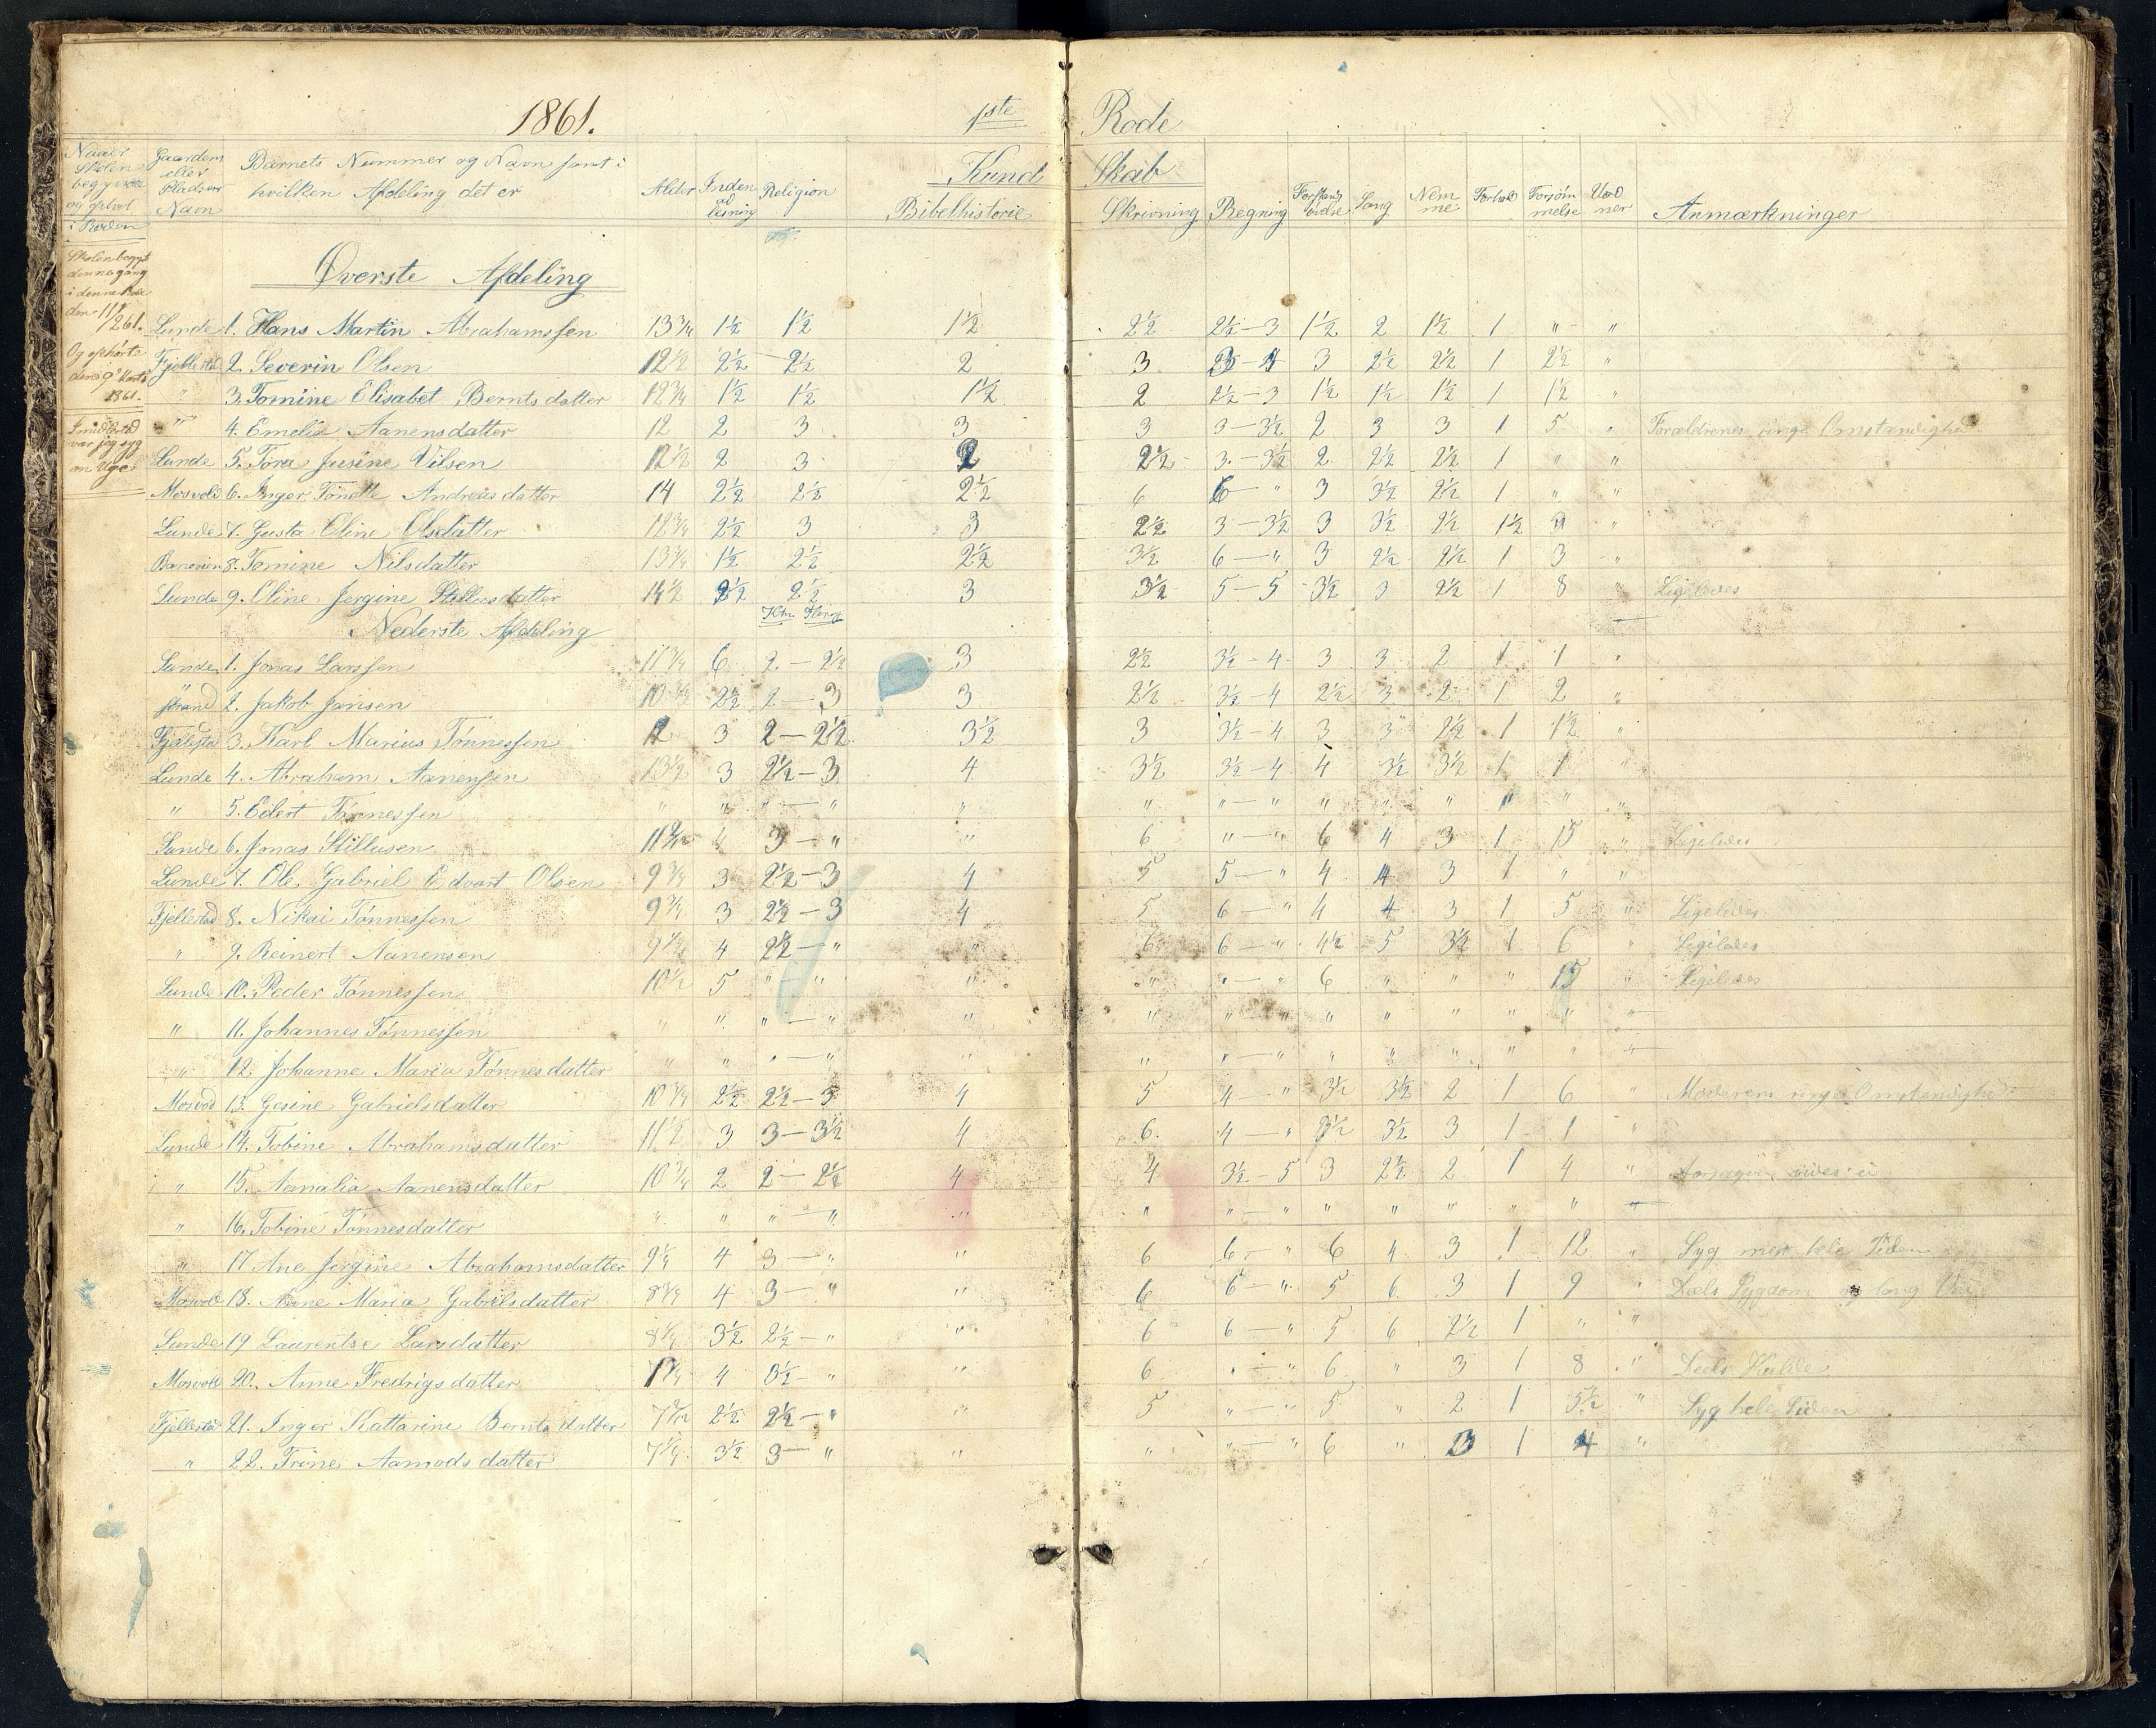 1861. 1ste Rode
Naaer Skolen begyndte og ophørt i Roden
Gaardens eller Pladsens Navn
Barnets Nummer og Navn samt i hvilken Afdeling det er
Alder
Inden ad læsning
Religion
Kund Skab
Bibelhistorie
Skrivning
Regning
Sang
Nem me
Forhold
Forsøm melse
Anmærkninger
Skolen begynte denne gang i denne Rode den 11/2 61.
Og ophørte den 9de Marts 1861.
Imidlertid var jeg syg en Uge
Øverste Afdeling
Lunde 1. Hans Martin Abrahamssen 13 3/4 1½ 1½ 1½ 2½ 2½-3 1½ 2 1½ 1 " "
Fjellestad 2. Severin Olsen 12½ 2½ 2½ 2 3 3 2½ 2½ 1 2½ "
" 3. Tomine Elisabet Berntsdatter 12 3/4 1½ 1½ 1½ 2 2½-3 1½ 1½ 1½ 1 1½ "
" 4. Emelia Aanensdatter 12 2 3 3 3 3-3½ 2 3 3 1 5 " Forældrenes ringe Omstændighed
Lunde 5. Tora Jusine Vilsen 12½ 2 3 2 2½ 3-3½ 2 2½ 2½ 1 " "
Mosvold 6. Inger Tonette Andreasdatter 14 2½ 2½ 2½ 6 6-" 3 3½ 2½ 1 " "
Lunde 7. Gusta Oline Olsdatter 12 3/4 2½ 3 3 2½ 3-3½ 3 3½ 2½ 1½ "
8. Tomine Nilsdatter 13 3/4 1½ 2½ 2½ 3½ 6-" 3 2½ 2½ 1 3 "
Lunde 9. Oline Jergine Stillusdatter 14½ 2½ 2½ 3 3½ 5-5 3½ 3 2½ 1 8 " Ligeledes
Nederste Afdeling
Lunde 1. Jonas Larssen 11 3/4 6 2-2½ 3 2½ 3½-4 3 3 2 1 1 "
Strand 2. Jakob Jansen 10 3/4 2½ 2-3 3 2½ 3½-4 2½ 3 2 1 2 "
Fjellestad 3. Karl Marius Tønnessen 12 3 2-2½ 3½ 3 3½-4 3 3 2½ 1 1½ "
Lunde 4. Abraham Aanensen 13½ 3 2½-3 4 3½ 3½-4 4 3½ 3½ 1 1 "
" 5. Edert Tønnessen " " "-" " " "-" " " " " " "
Lunde 6. Jonas Stillusen 4 3-" " 6 "-" 6 4 3 1 15 " Ligeledes
Lunde 7. Ole Gabriel Edvart Olsen 9 3/4 3 2½-3 4 5 5-" 4 4 3 1 " "
Fjellestad 8. Nikai Tønnessen 9 3/4 3 2½-3 4 5 6-" 4 4 3 1 5 " Ligeledes
" 9. Reinert Aanensen 9½ 4 2½-" " 6 6-" 4½ 5 3½ 1 6 " Ligeledes
Lunde 10. Peder Tønnessen 10½ 5 "-" " " "-" 6 " " " 15 " Ligeledes
" 11. Johannes Tønnessen " " "-" " " "-" " " " " " "
" 12. Johanne Maria Tønnesdatter " " "-" " " "-" " " " " " "
Mosvold 13. Gesine Gabrielsdatter 10 3/4 2½ 2½-3 4 5 4-" 3½ 3½ 2 1 6 " Moderens ringe Omstændighed
Lunde 14. Tobine Abrahamsdatter 11½ 3 3-3½ 4 6 4-" 3½ 3½ 3 1 1 "
" 15. Aanalia Aanensdatter 10 3/4 2 2-2½ 4 4 3½-5 3 2½ 2 1 4 " Aarsagen vides ei
" 16. Tobine Tønnesdatter " " "-" " " "-" " " " " " "
" 17 Ane Jergine Abrahamsdatter 9¼ 4 3-" " 6 6-" 6 4 3 1 12 " Syg mest hele Tiden
Mosvold 18. Anne Maria Gabrilsdatter 8 3/4 4 3-" " 6 6-" 5 6 3 1 9 " Dels Sygdom og lang Vei
Lunde 19 Laurentse Larsdatter 3½ 2½-" " 6 6-" 5 6 2½ 1 " "
Mosvold 20. Anne Fredrigsdatter 4 3½-" " 6 "-" 6 " 3 1 8 " Deels Kulde
Fjellestad 21. Inger Kattarine Berntsdatter 2½ 2½-" " 5 "-" 5 " 2 1 5½ " Syg hele Tiden
" 22. Trine Aamodsdatter 3½ 3-" " " "-" 6 " 3 1 4 "